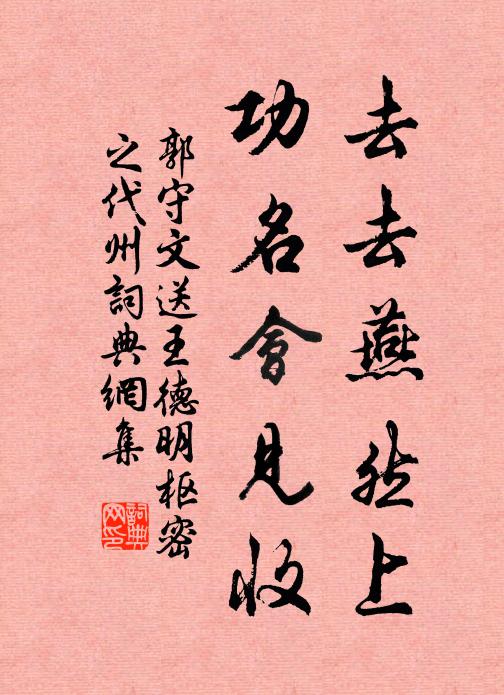 去去燕然上
功名會見收
郭守文送王德明枢密
之代州詞典網集
詞典
网印